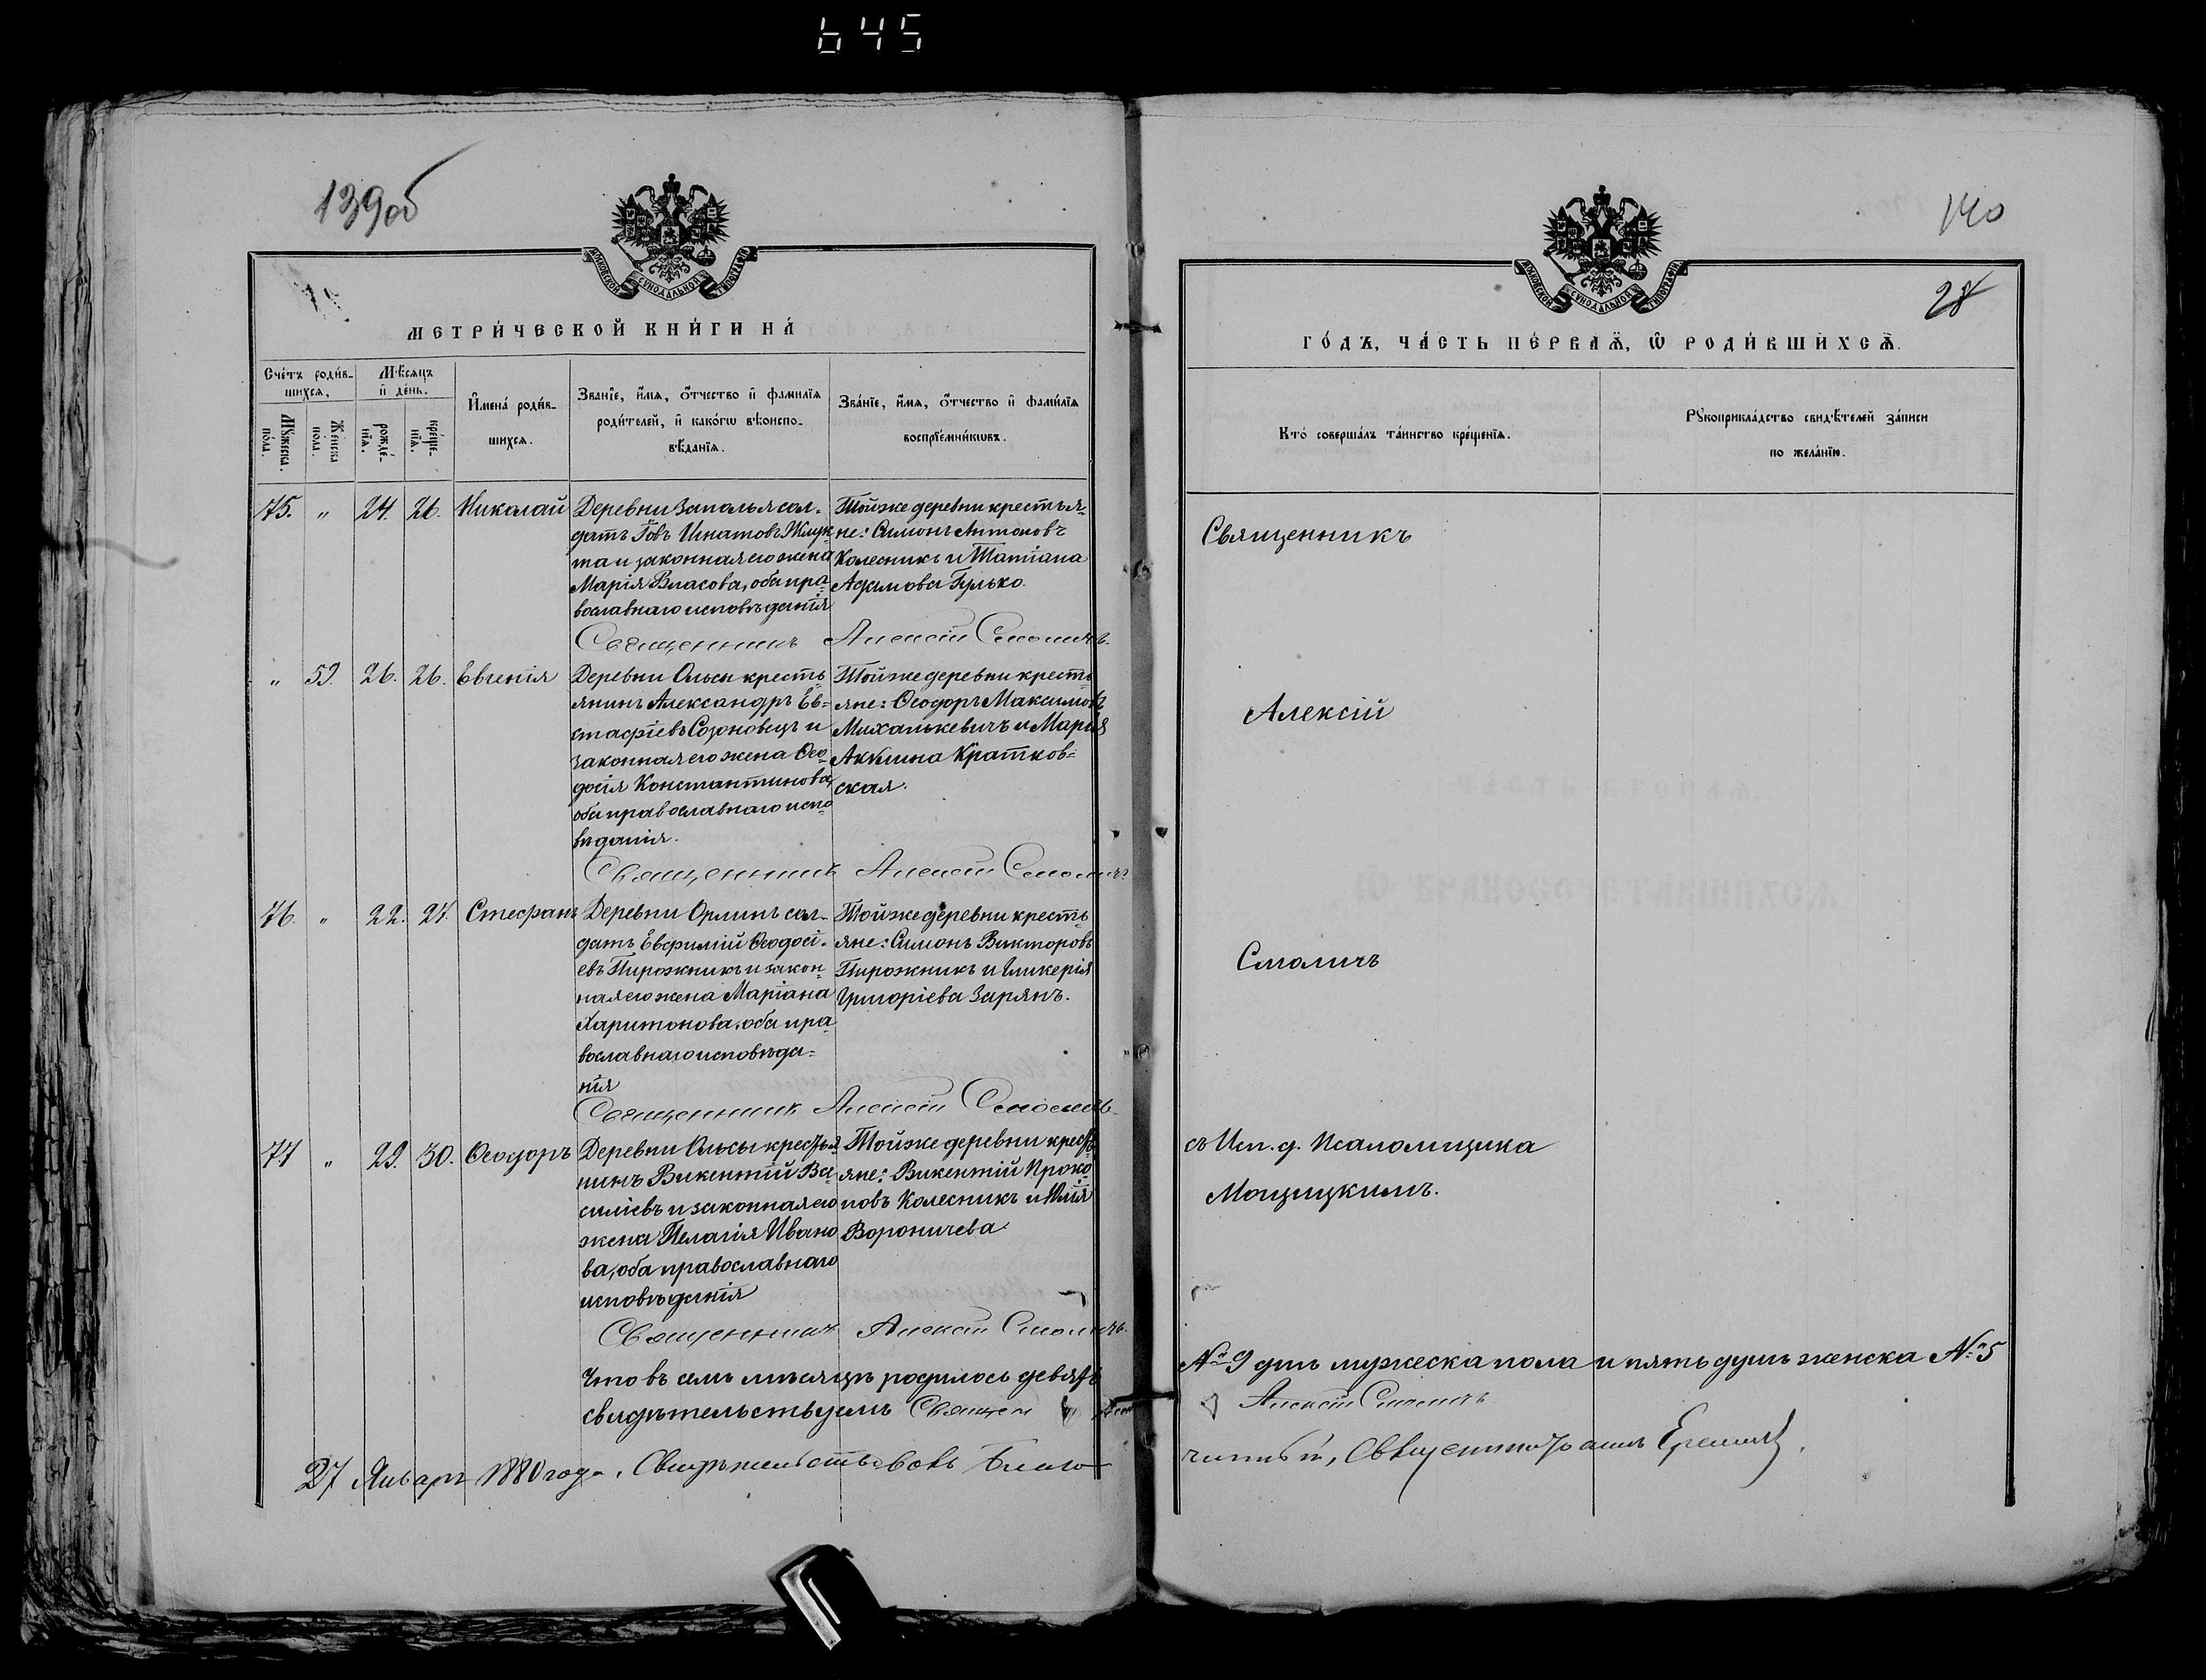 645
139об
МОСКОВСКОЙ СѴНОДАЛЬНОЙ ТИПОГРАФІИ
МЕТРИ́ЧЕСКОЙ КНИ́ГИ НА́
Сче́тъ роди́в-
шихся,
Мѣсяцъ
и҆ де́нь.
Мꙋ́жеска.
по́ла.
Же́нска
пола.
рожде́-
нїя.
креще́-
нїя.
И҆мена́ роди́в-
шихся.
Зва́нїе, и҆́мя, ѻ҆́тчество и҆ фами́лїя
роди́телей, и҆ како́гѡ вѣроиспо-
вѣ́данїя.
Зва́нїе, и҆́мя, ѻ҆́тчество и҆ фами́лїя
воспрїе́мникѡвъ.
75. „ 24. 26. Николай
Деревни Заполья сол-
датъ Іовъ Игнатовъ Жлук
та и законная его жена
Марія Власова, оба пра-
вославнаго исповѣданія
Тойже деревни крестья-
не: Симонъ Антоновъ
Колесникъ и Татіана
Адамова Гулько.
Священникъ Алексій Смоличъ.
„ 59. 26. 26. Евгенія
Деревни Ольсы кресть-
янинъ Александръ Ев-
стафіевъ Созоновецъ и
законная его жена Ѳео-
досія Константинова,
оба православнаго испо-
вѣданія.
Тойже деревни кресть-
яне: Ѳеодоръ Максимовъ
Михалькевичъ и Марія
Акилина Кратков-
ская.
Священникъ Алексій Смоличъ
76. „ 22. 27. Стефанъ
Деревни Орлинъ сол-
датъ Евфимій Ѳеодосі-
евъ Пирожникъ и закон-
ная его жена Маріана
Харитонова, оба пра-
вославнаго исповѣда-
нія
Тойже деревни кресть-
яне: Симонъ Викторовъ
Пирожникъ и Гликерія
Григоріева Зарянъ.
Священник Алексій Смоличъ
77 „ 29. 30. Ѳеодоръ
Деревни Ольсы крестья-
нинъ Викентій Ва-
силіевъ и законная его
жена Пелагія Ивано
ва, оба православнаго
исповѣданія
Тойже деревни кресть-
яне: Викентій Проко-
повъ Колесникъ и Юлія
Вороничева.
Священникъ Алексій Смоличъ.
Что въ семъ мѣсяцѣ родилось девять
свидѣтельствуемъ Священ
27 Января 1880 года. Свидѣтельствовалъ Благо
140
28
МОСКОВСКОЙ СѴНОДАЛЬНОЙ ТИПОГРАФІИ
ГО́ДЪ, ЧА́СТЬ ПЕ́РВАЯ, Ѡ҆ РОДИ́ВШИХСЯ.
Кто̀ соверша́лъ та́инство креще́нїя.
Рꙋкоприкла́дство свидѣ́телей за́писи
по жела́нїю.
Священникъ
Алексій
Смоличъ
съ Исп. д. Псаломщика
Мощицкимъ.
№ 9 душъ мужеска пола и пять душъ женска № 5
Алексій Смоличъ
чинный, Священникъ Іоаннъ